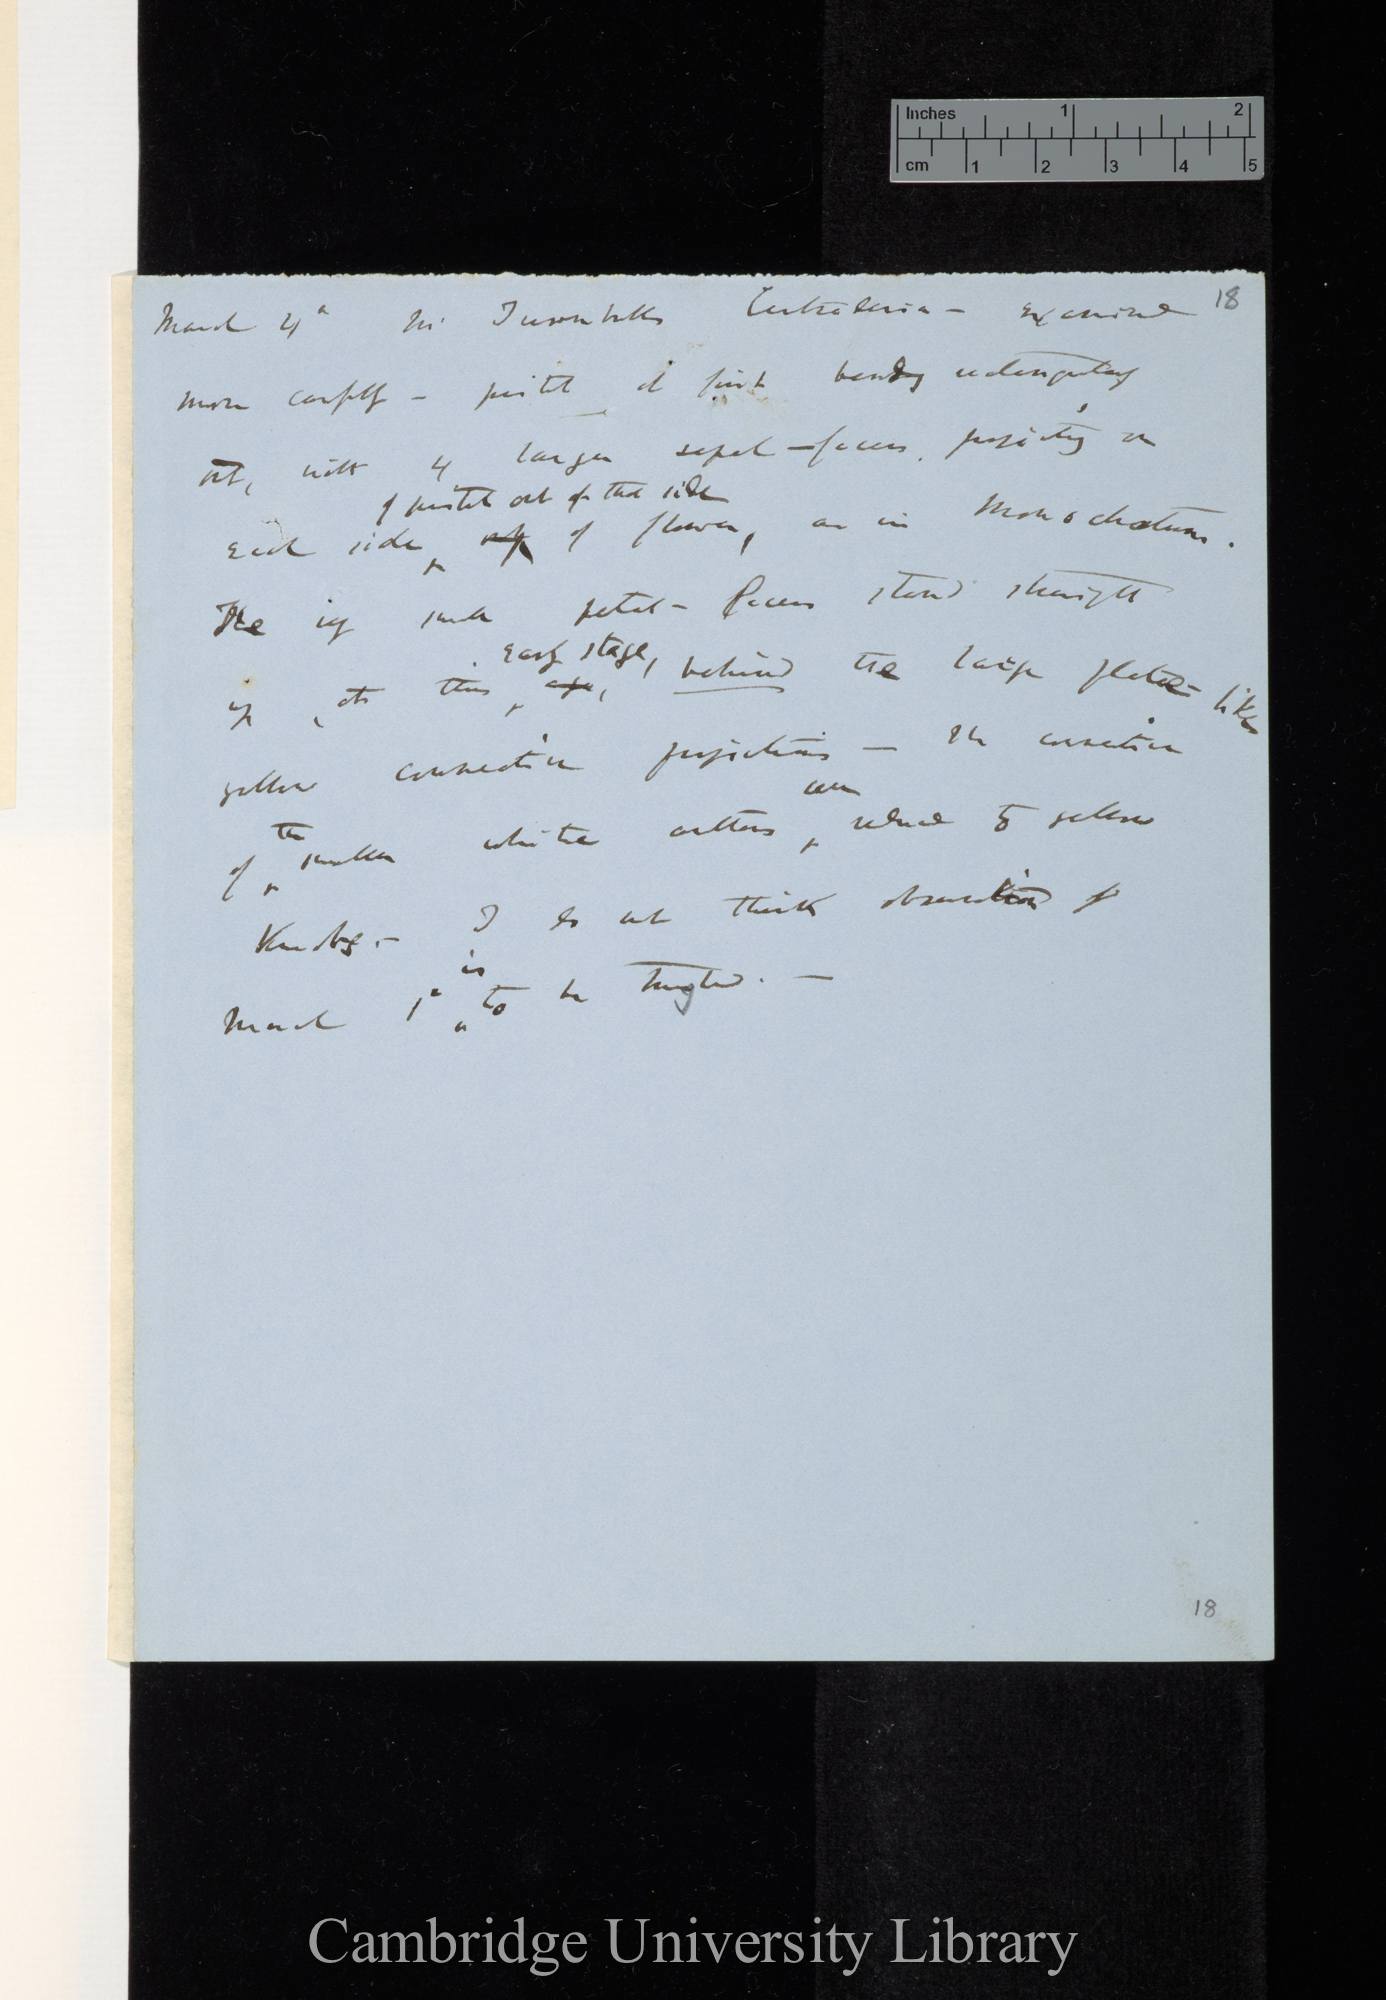 Inches 1 2
cm 1 2 3 4 5
18
March 4th Mr Turnbulls Centradenia — examined
more carefully — pistil at first bending rectangularly
out, with 4 larger sepal-facers, projecting on
of pistil out of that side
each side of flower, as in Monochaetum.
The small petal-facers stand straight
early stage,
up, at this age, behind the large plate-like
yellow connective projections — The connective
are
of the smaller white anthers reduced to yellow
Knobs. — I do not think observation of
is
March 1st to be trusted. —
18
Cambridge University Library